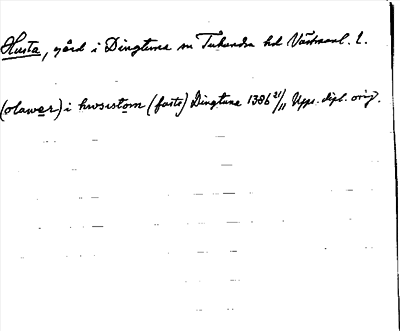 Husta, gård i Dingtuna sn Tuhundra hd Västmanl. l.
(olawer) i hwsistom (faste) Dingtuna 1386 21/11 Upps. dipl. orig.